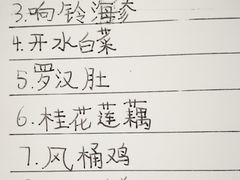 3.响铃海参
4.开水白菜
5.罗汉肚
6.桂花莲藕
7.风桶鸡